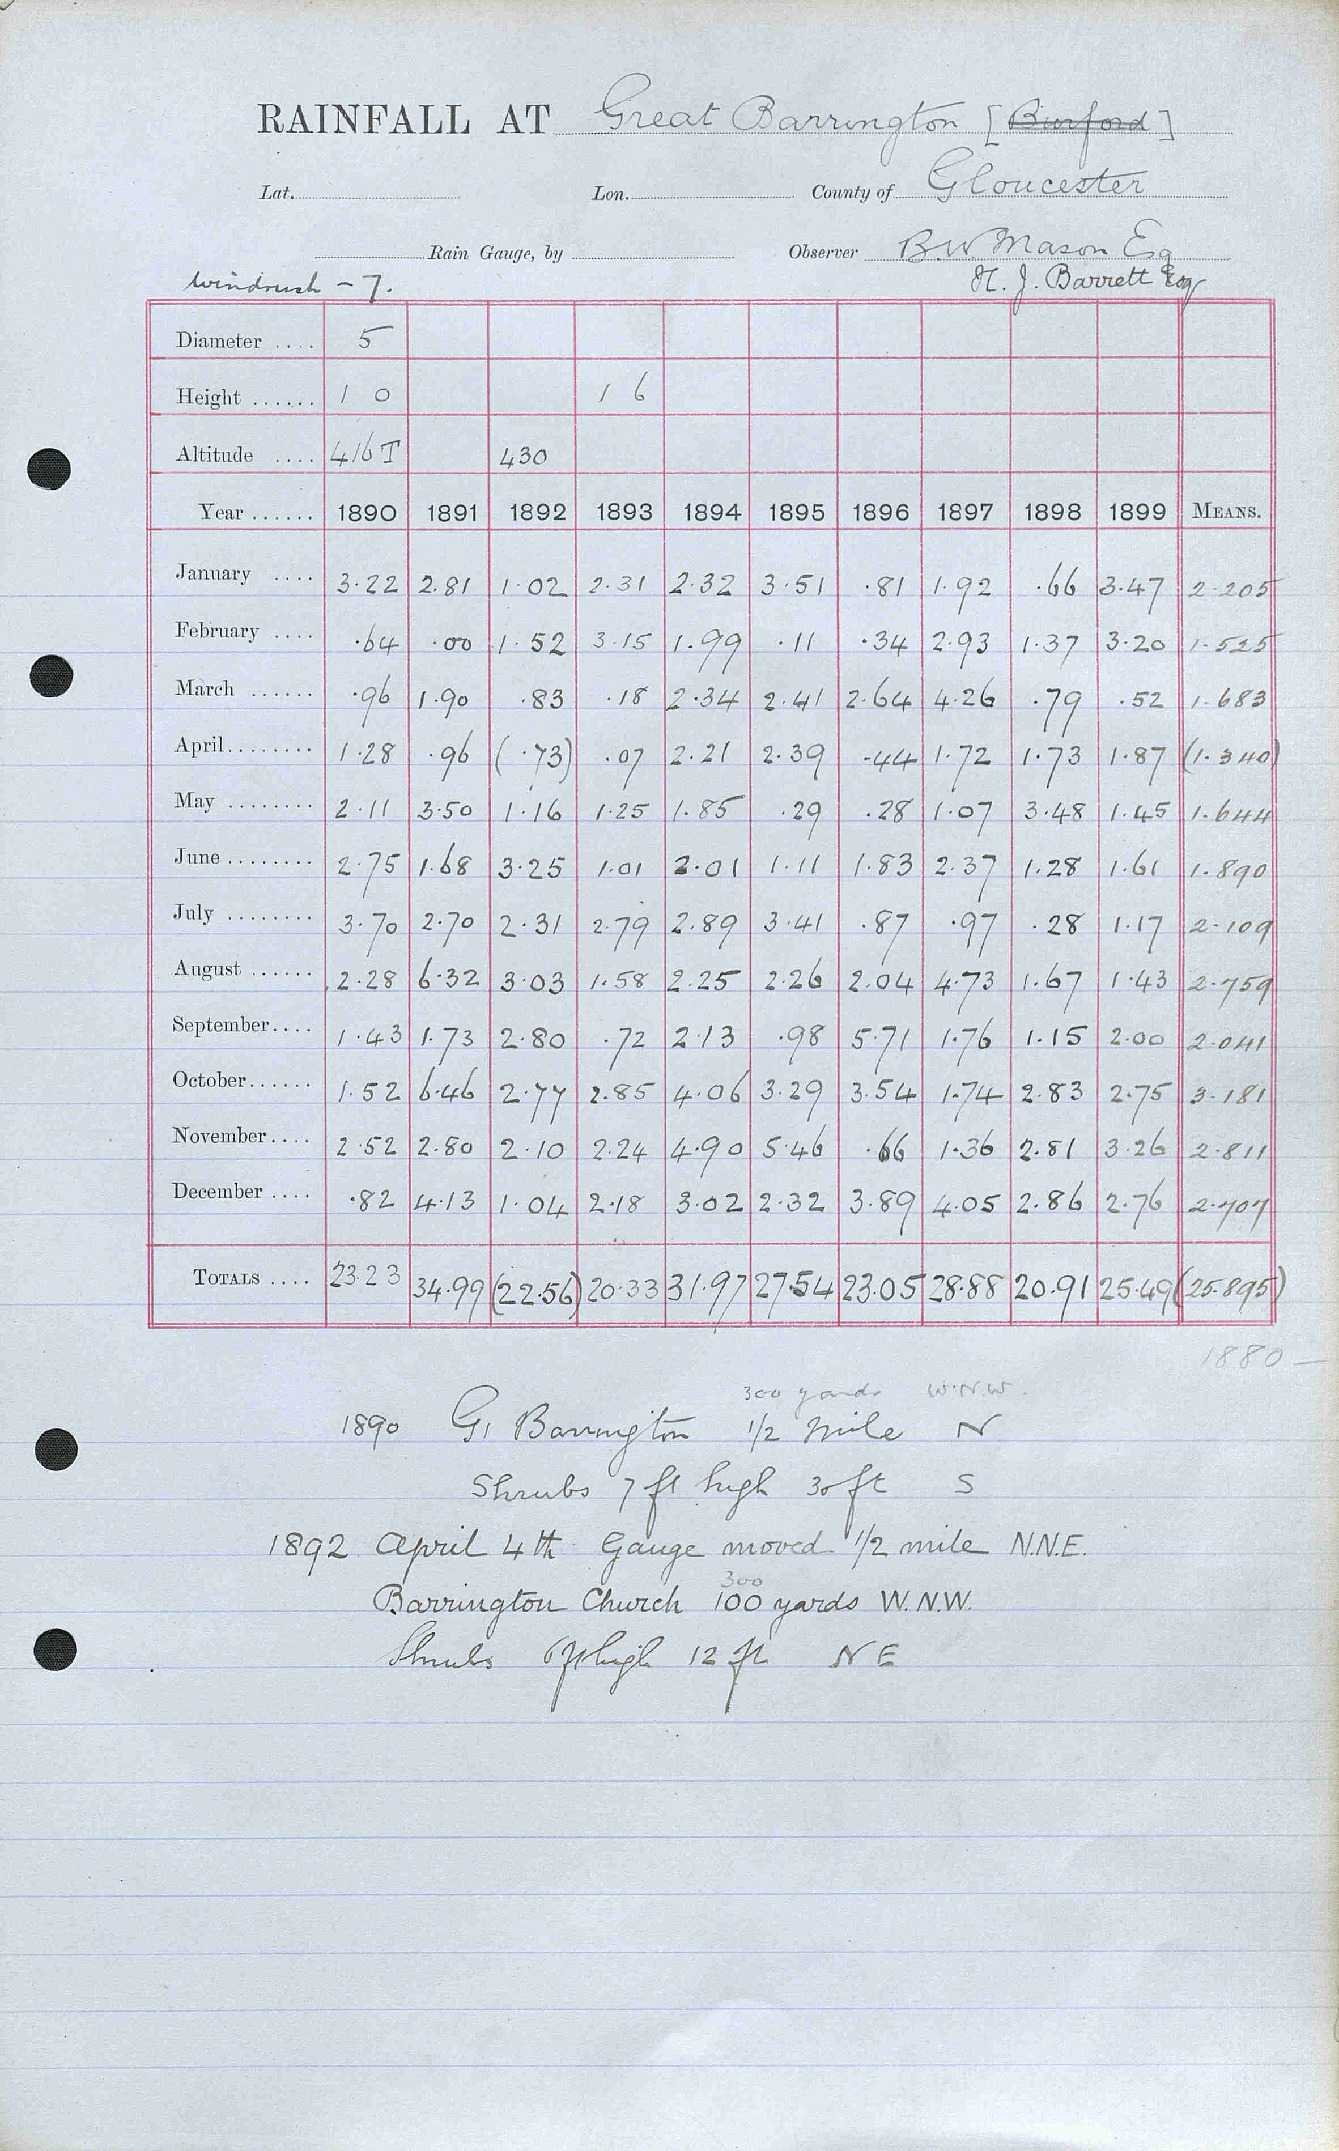 RAINFALL AT Great Barrington [Burford]
Lat. Lon. County of Gloucester
Rain Gauge, by Observer B W Mason Esq
Windrush - 7. H. J. Barrett Esq
Diameter .... 5
Height ...... 1 0 1 6
Altitude .... 416 T 430
Year ...... 1890 1891 1892 1893 1894 1895 1896 1897 1898 1899 MEANS.
January .... 3.22 2.81 1.02 2.31 2.32 3.51 .81 1.92 .66 3.47 2.205
February .... .64 .00 1.52 3.15 1.99 .11 .34 2.93 1.37 3.20 1.525
March ...... .96 1.90 .83 .18 2.34 2.41 2.64 4.26 .79 .52 1.683
April........ 1.28 .96 (.73) .07 2.21 2.39 .44 1.72 1.73 1.87 (1.340)
May ........ 2.11 3.50 1.16 1.25 1.85 .29 .28 1.07 3.48 1.45 1.644
June ........ 2.75 1.68 3.25 1.01 2.01 1.11 1.83 2.37 1.28 1.61 1.890
July ........ 3.70 2.70 2.31 2.79 2.89 3.41 .87 .97 .28 1.17 2.109
August ...... 2.28 6.32 3.03 1.58 2.25 2.26 2.04 4.73 1.67 1.43 2.759
September.... 1.43 1.73 2.80 .72 2.13 .98 5.71 1.76 1.15 2.00 2.041
October...... 1.52 6.46 2.77 2.85 4.06 3.29 3.54 1.74 2.83 2.75 3.181
November.... 2.52 2.80 2.10 2.24 4.90 5.46 .66 1.36 2.81 3.26 2.811
December .... .82 4.13 1.04 2.18 3.02 2.32 3.89 4.05 2.86 2.76 2.707
TOTALS .... 23.23 34.99 (22.56) 20.33 31.97 27.54 23.05 28.88 20.91 25.49 (25.895)
1880 —
300 yards W.N.W.
1890 Gt Barrington 1/2 mile N
Shrubs 7 ft high 30 ft S
1892 April 4th Gauge moved 1/2 mile N.N.E.
300
Barrington Church 100 yards W.N.W.
Shrubs 6 ft high 12 ft N E